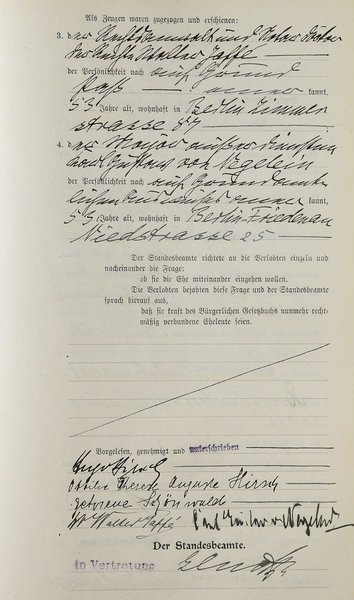 Als Zeugen waren zugezogen und erschienen:
3. der Rechtsanwalt und Notar Doktor
der Rechte Walter Jaffé
der Persönlichkeit nach auf Grund
Paß aner kannt,
53 Jahre alt, wohnhaft in Berlin Zimmer
strasse 87
4. der Major außer Diensten
Karl Gustav von Vegelein
der Persönlichkeit nach auf Grund amt
lichen aner kannt,
53 Jahre alt, wohnhaft in Berlin Friedenau
Niedstrasse 25
Der Standesbeamte richtete an die Verlobten einzeln und
nacheinander die Frage:
ob sie die Ehe miteinander eingehen wollen.
Die Verlobten bejahten diese Frage und der Standesbeamte
sprach hierauf aus,
daß sie kraft des Bürgerlichen Gesetzbuchs nunmehr recht-
mäßig verbundene Eheleute seien.
Vorgelesen, genehmigt und unterschrieben
Hugo Hirsch
Ottilie Therese Auguste Hirsch
geborene Schönwald
Dr Walter Jaffé Karl Gustav v. Vegelein
Der Standesbeamte.
In Vertretung